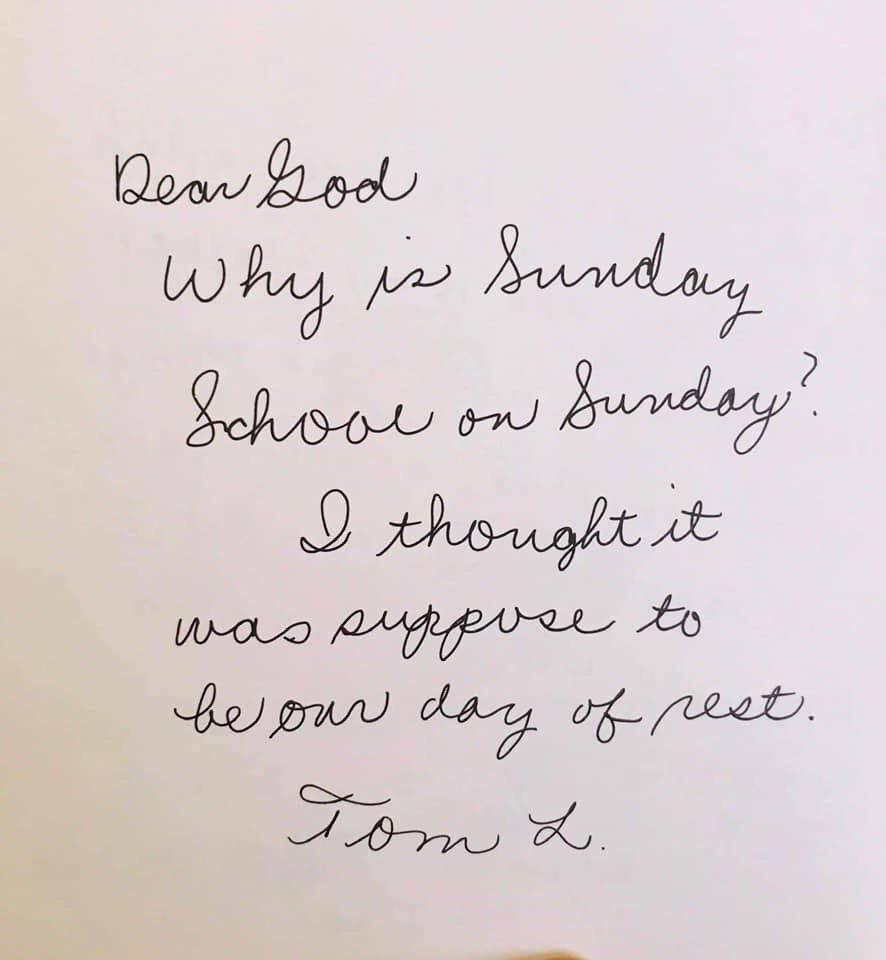 Dear God
Why is Sunday
School on Sunday?
I thought it
was suppose to
be our day of rest.
Tom L.